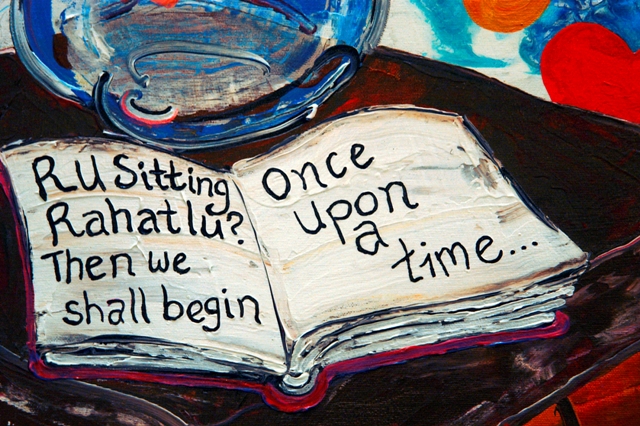 RU Sitting
Rahatlu?
Then we
shall begin
Once
upon
a
time...